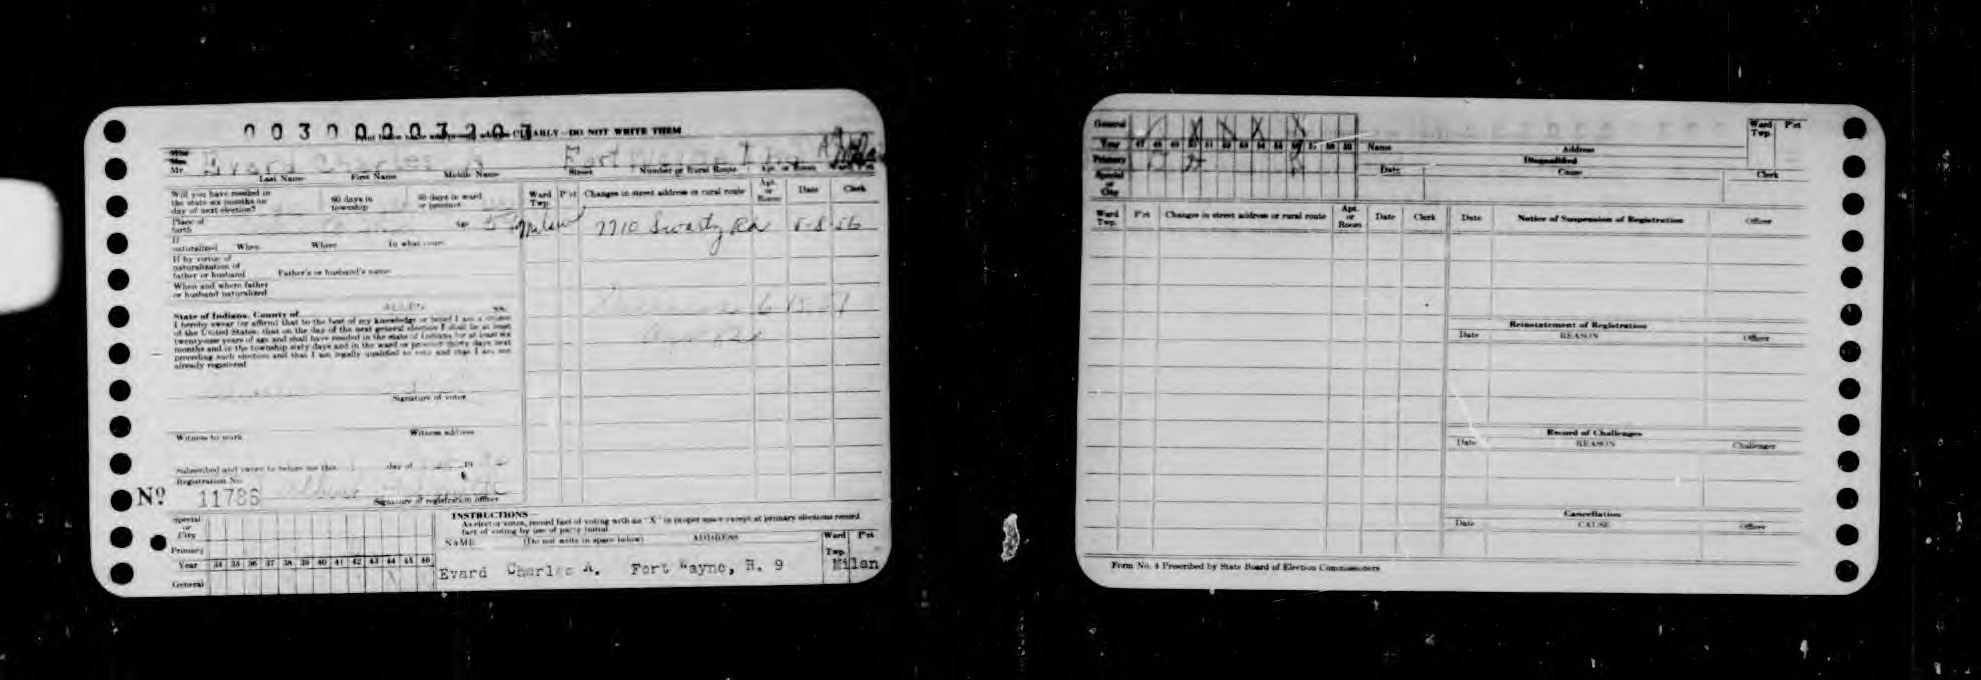 CLEARLY—DO NOT WRITE THEM
Miss
Mrs.
Mr. Evard Charles Fort Wayne
Last Name First Name Middle Name Street Number or Rural Route Apt. or Room
Will you have resided in
the state six months on
day of next election?
60 days in
township
30 days in ward
or precinct
Place of
birth
Age
If
naturalized When Where In what court
If by virtue of
naturalization of
father or husband Father's or husband's name
When and where father
or husband naturalized
State of Indiana, County of Allen ss.
I hereby swear (or affirm) that to the best of my knowledge or belief I am a citizen
of the United States, that on the day of the next general election I shall be at least
twenty-one years of age and shall have resided in the state of Indiana for at least six
months and in the township sixty days and in the ward or precinct thirty days next
preceding such election and that I am legally qualified to vote and that I am not
already registered
Signature of voter
Witness to mark Witness address
Subscribed and sworn to before me this day of 19
Registration No.
Nº 11786 Signature of registration officer
Ward
Twp.
P'ct Changes in street address or rural route Apt.
or
Room
Date Clerk
Milan 7710 Swartz Rd 5-8-56
Special
or
City
Primary
Year 34 35 36 37 38 39 40 41 42 43 44 45 46
General
INSTRUCTIONS—
As elector votes, record fact of voting with an "X" in proper space except at primary elections record
fact of voting by use of party initial
NAME (Do not write in space below) ADDRESS Ward
Twp. P'ct
Evard Charles A. Fort Wayne, R. 9 Milan
General
Year 47 48 49 50 51 52 53 54 55 56 57 58 59
Primary
Special
or
City
Name Address
Ward
Twp. P'ct
Disqualified
Date Cause Clerk
Ward
Twp. P'ct Changes in street address or rural route Apt.
or
Room Date Clerk
Date Notice of Suspension of Registration Officer
Reinstatement of Registration
Date REASON Officer
Record of Challenges
Date REASON Challenger
Cancellation
Date CAUSE Officer
Form No. 4 Prescribed by State Board of Election Commissioners